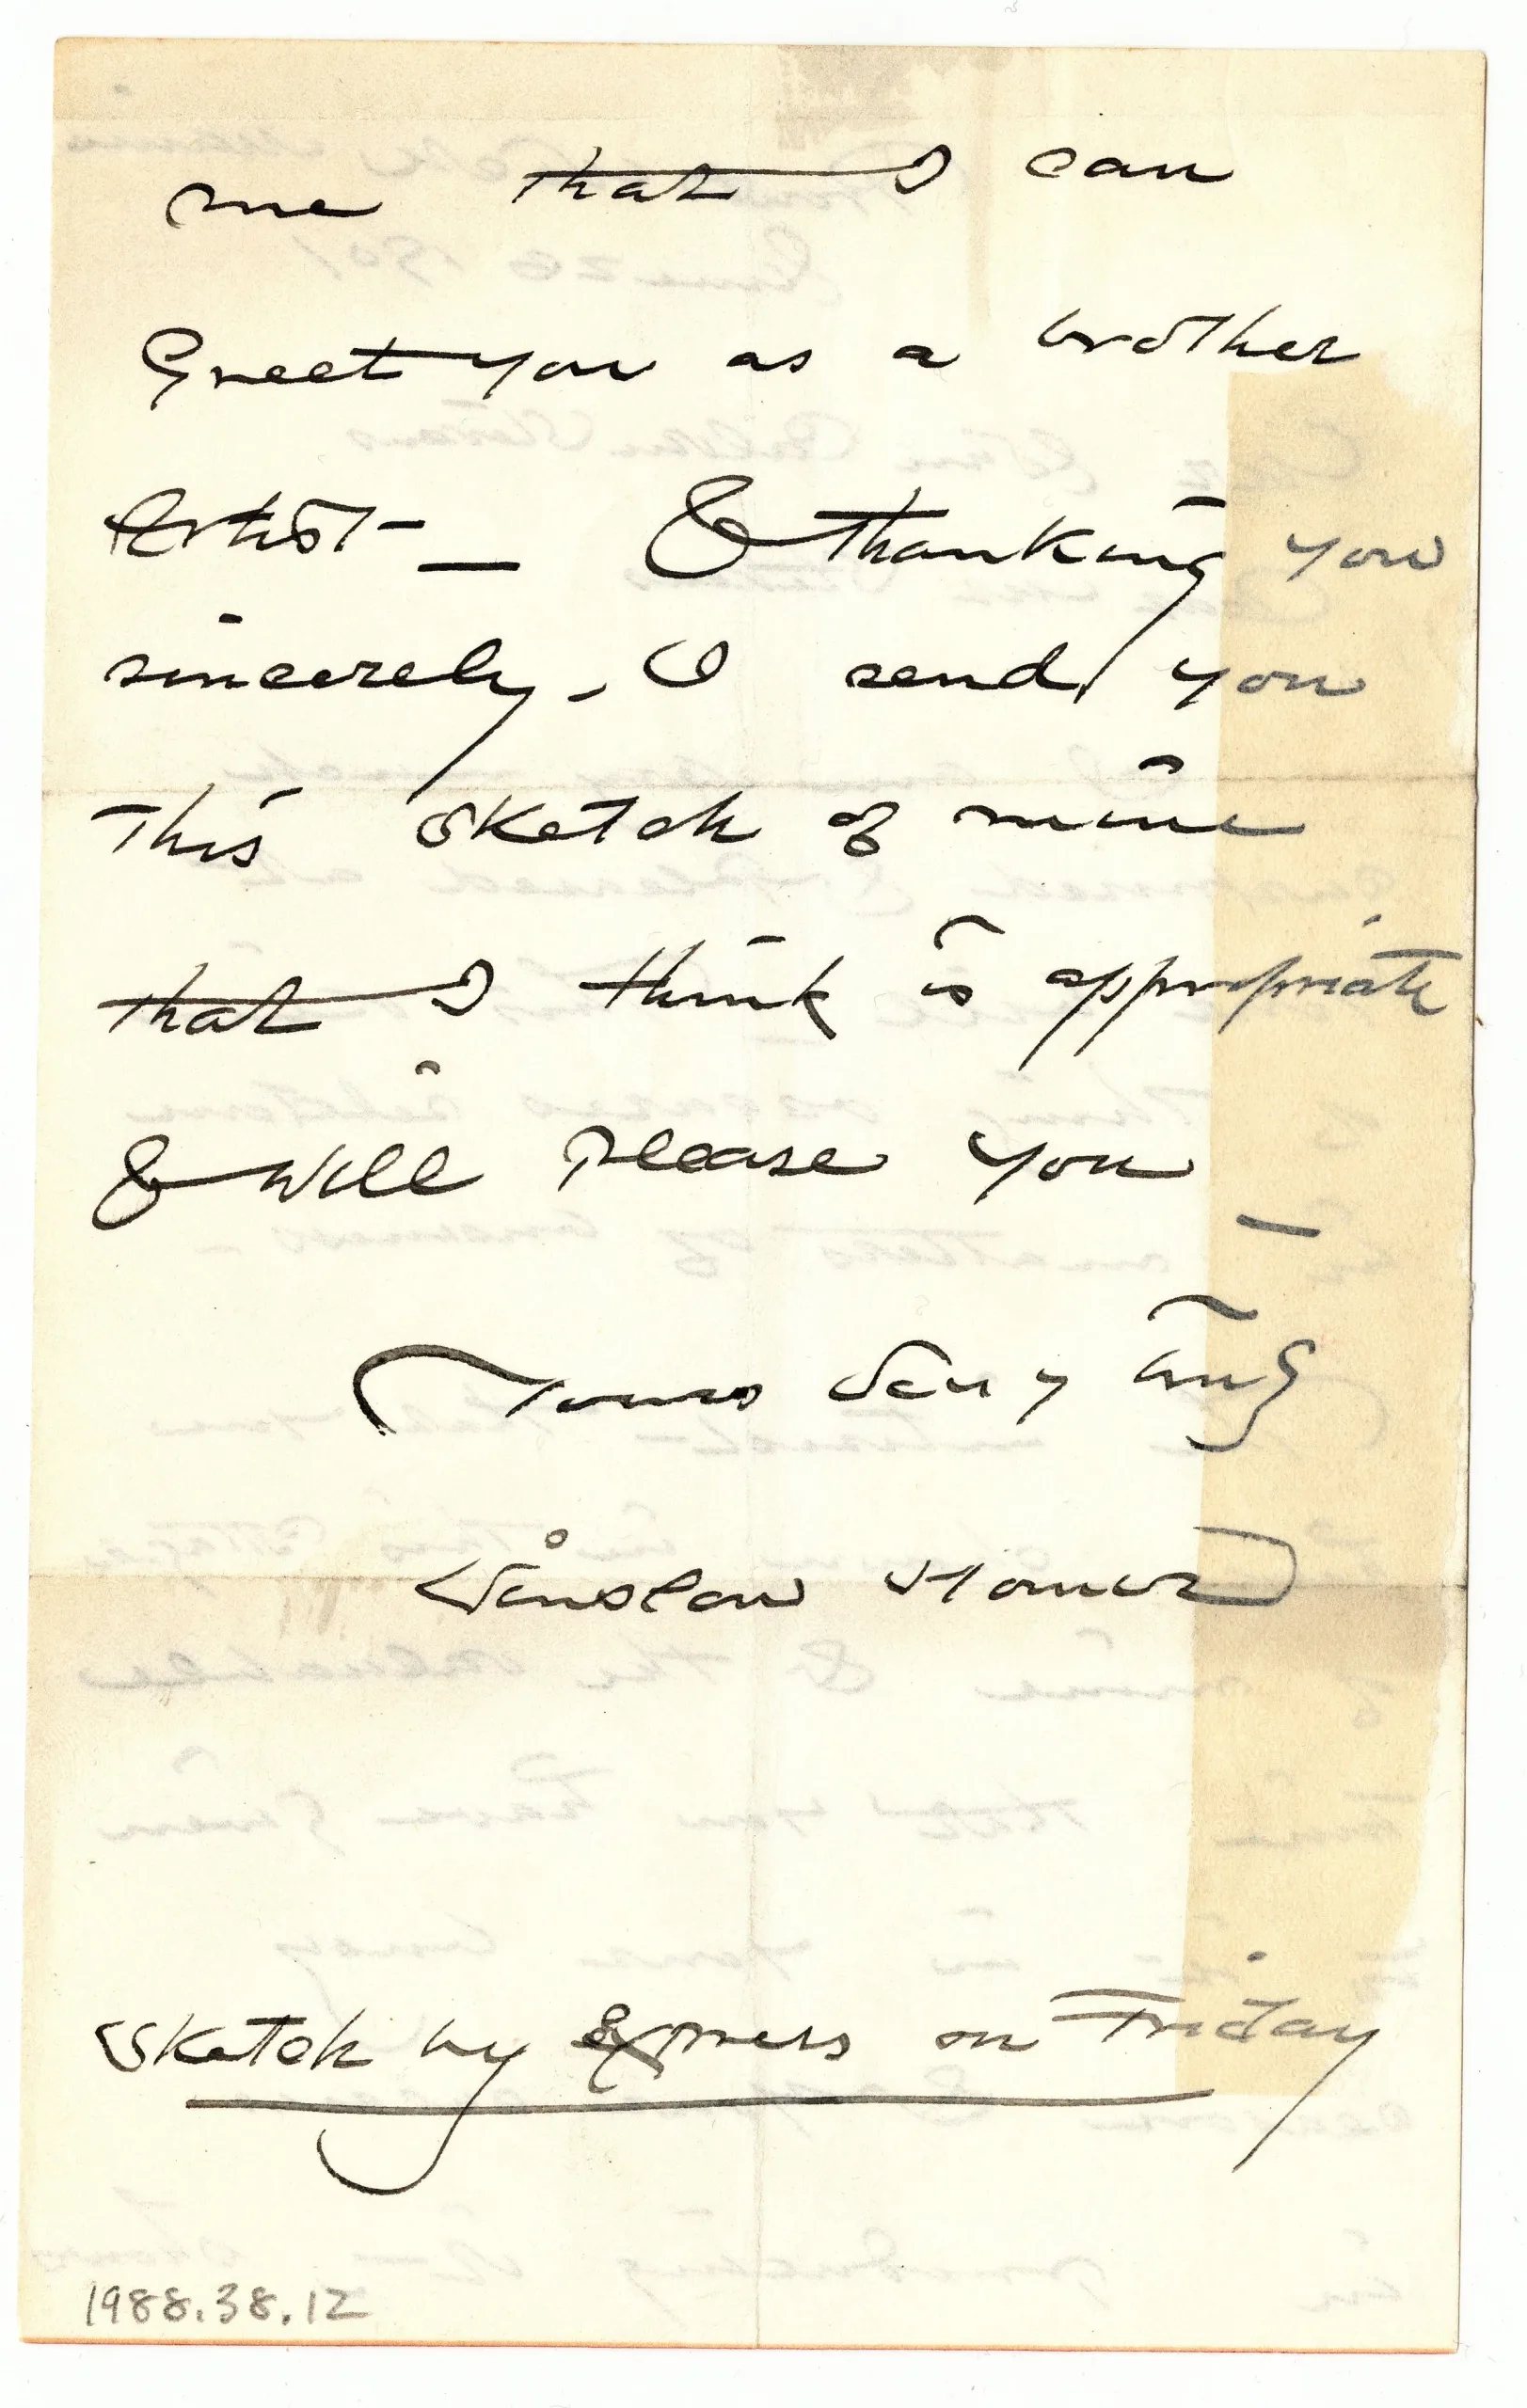 me that I can
Greet you as a brother
Artist — & thanking you
sincerely, I send you
this sketch of mine
that I think is appropriate
& will please you —
Yours very truly
Winslow Homer
Sketch by Express on Friday
1988.38.12